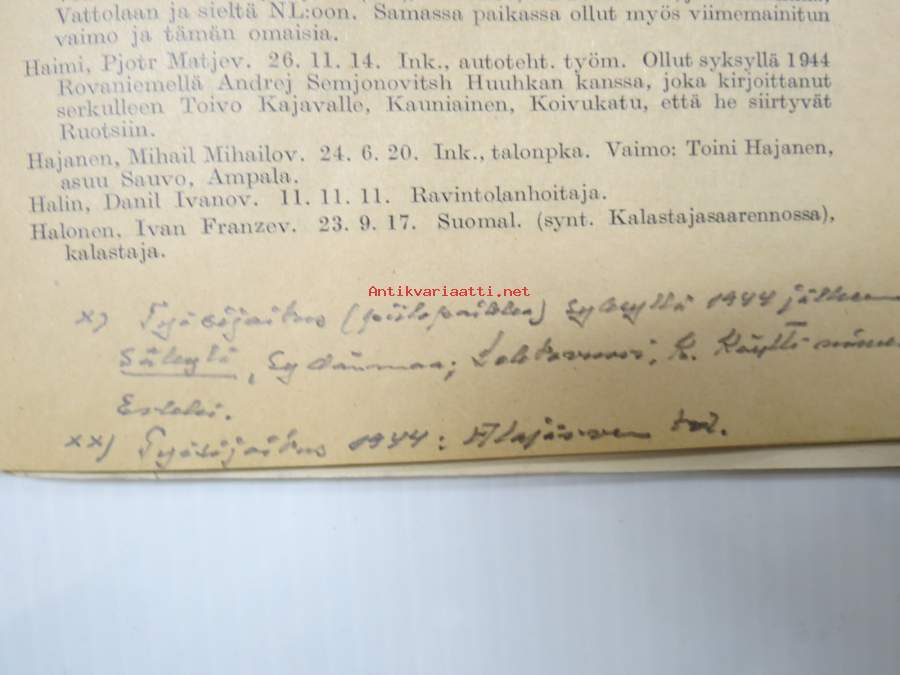 Vattolaan ja sieltä NL:oon. Samassa paikassa ollut myös viimemainitun
vaimo ja tämän omaisia.
Haimi, Pjotr Matjev. 26. 11. 14. Ink., autoteht. työm. Ollut syksyllä 1944
Rovaniemellä Andrej Semjonovitsh Huuhkan kanssa, joka kirjoittanut
serkulleen Toivo Kajavalle, Kauniainen, Koivukatu, että he siirtyvät
Ruotsiin.
Hajanen, Mihail Mihailov. 24. 6. 20. Ink., talonpka. Vaimo: Toini Hajanen,
asuu Sauvo, Ampala.
Halin, Danil Ivanov. 11. 11. 11. Ravintolanhoitaja.
Halonen, Ivan Franzev. 23. 9. 17. Suomal. (synt. Kalastajasaarennossa),
kalastaja.
Antikvariaatti.net
x) Työsijoitus (piilopaikka) syksyllä 1944 jälkeen
Säkylä, Sydänmaa; H. Käytti
xx) Työsijoitus 1944: Alajärven